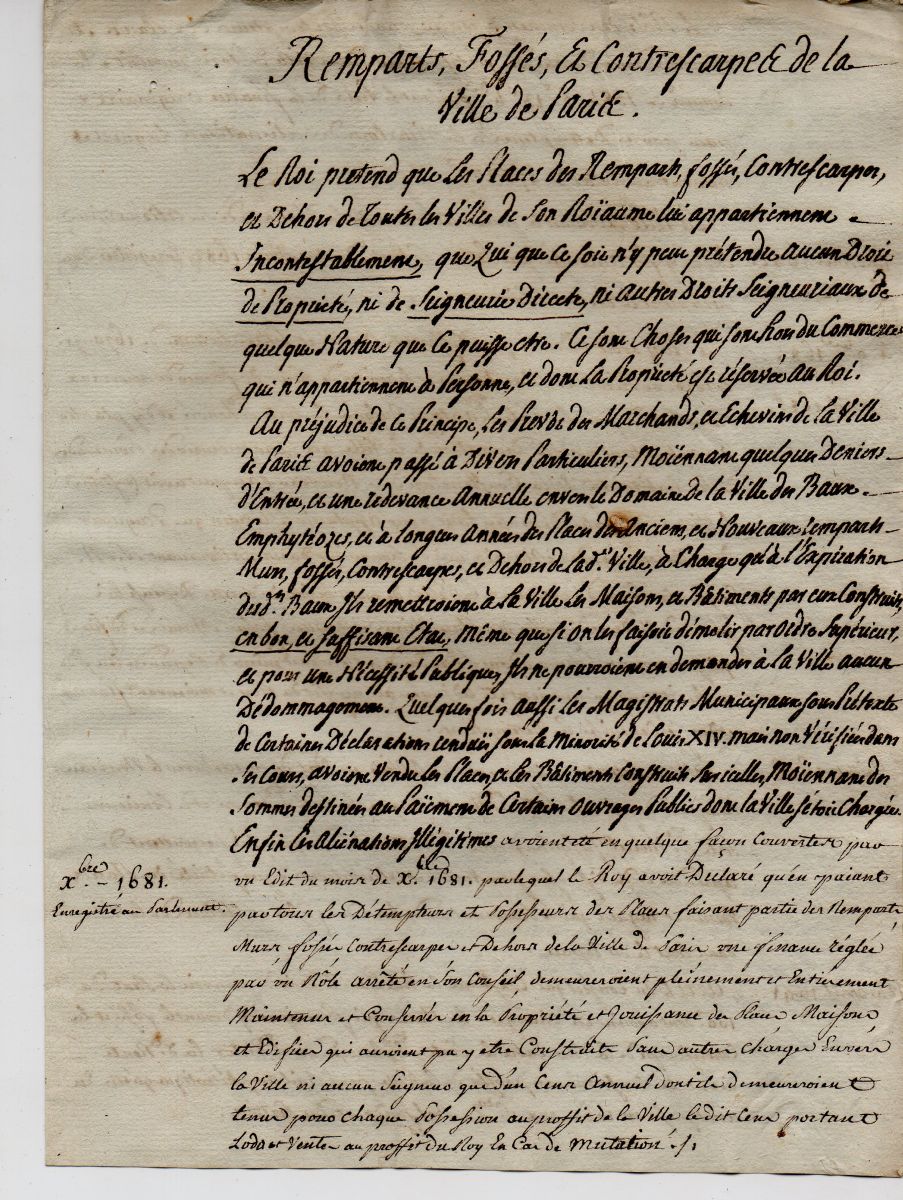 Remparts, Fossés, Et Contrescarpes de la
Ville de Paris.
Le Roi prétend que Les Places des Remparts, fossés, Contrescarpes,
et Dehors de Toutes les Villes de Son Roïaume lui appartiennent
Incontestablement, que Qui que Ce soit n'y peut prétendre Aucun Droit
de Propriété, ni de Seigneurie Directe, ni autres Droits Seigneuriaux de
quelque Nature que Ce puisse etre. Ce sont Choses qui sont Hors du Commerce
qui n'appartiennent à Personne, et dont La Propriété est réservée Au Roi.
Au préjudice de Ce Principe, Les Prevôt des Marchands, et Echevins de La Ville
de Paris avoient passé à Divers Particuliers, Moïennant quelques Deniers
d'Entrée, et une redevance Annuelle envers le Domaine de la Ville des Baux
Emphytéozes, et à longues Années des Places des Anciens, et Nouveaux remparts
Murs, fossés, Contrescarpes, et Dehors de la d.e Ville, à Charge qu'à l'Expiration
des d.ts Baux Ils remettroient à La Ville Les Maisons, et Bâtiments par eux Construits,
en bon, et suffisant Etat, Même que si on les faisoit démolir par Ordre Supérieur,
et pour une Nécessité Publique, Ils ne pourroient en demander à La Ville aucun
Dédommagement. Quelques fois aussi Les Magistrats Municipaux sous Prétexte
de Certaines Déclarations rendues sous La Minorité de Louis XIV. mais non Vérifiées dans
Ses Cours, avoient Vendu Les Places, et Les Bâtiments Construits Sur icelles, Moïennant des
Sommes destinées au Païement de Certains Ouvrages Publics dont la Ville s'étoit Chargée.
Enfin Les Aliénations Illégitimes avoient été en quelque façon Couvertes par
un Edit du mois de X.bre 1681. par lequel le Roy avoit Declaré qu'en païant
X.bre - 1681.
Enregistré au Parlement.
par tous les Détempteurs et Possesseurs des Places faisant partie des Remparts
Murs fossés Contrescarpes et Dehors de la Ville de Paris une finance réglée
par un Rôle arrêté en Son Conseil, demeureroient pleinement et Entierement
Maintenus et Conservés en la Propriété et Jouissance des Places Maisons
et Edifices qui auroient pu y etre Construits Sans autres Charges Envers
la Ville ni aucun Seigneur que d'un Cens Annuel dont ils demeureroient
tenus pour chaque Possession au proffit de la Ville le dit Cens portant
Lods et Ventes au proffit du Roy En Cas de Mutation ./.